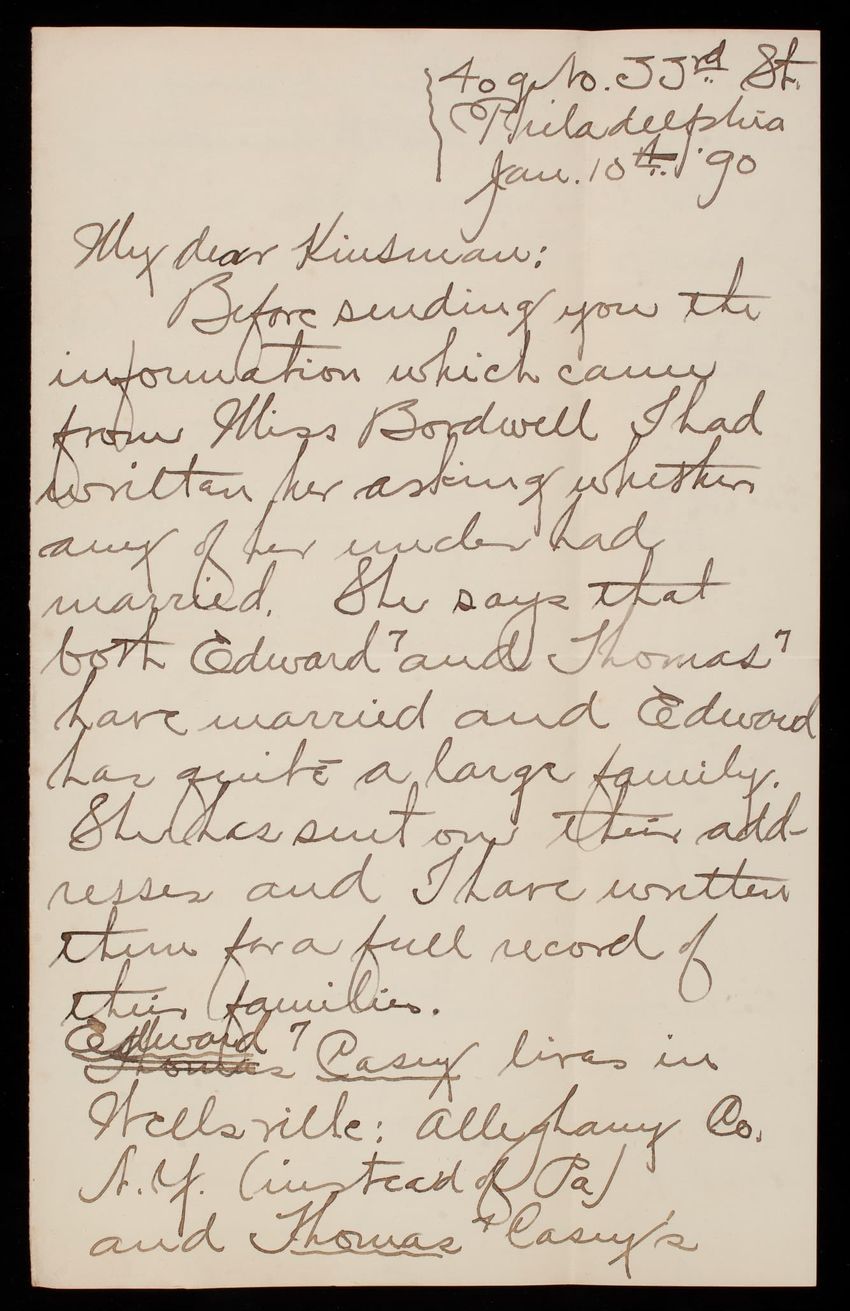 409 No. 33rd St.
Philadelphia
Jan. 10th. '90
My dear Kinsman:
Before sending you the
information which came
from Miss Bordwell I had
written her asking whether
any of her uncles had
married. She says that
both Edward⁷ and Thomas⁷
have married and Edward
has quite a large family.
She has sent me their add-
resses and I have written
them for a full record of
their families.
Edward ⁷
Thomas Casey lives in
Wellsville: Alleghany Co.
N.Y. (instead of Pa)
and Thomas ⁷ Casey's